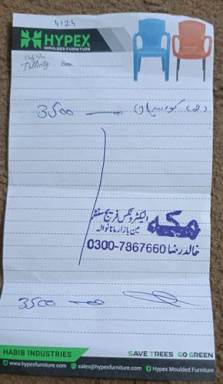 4124
HYPEX
MOULDED FURNITURE
3500 — کرسیاں
مکہ الیکٹرونکس فریج سنٹر
مین بازار مانانوالہ
خالد رضا 0300-7867660
3500
HABIB INDUSTRIES SAVE TREES GO GREEN
www.hypexfurniture.com sales@hypexfurniture.com Hypex Moulded Furniture